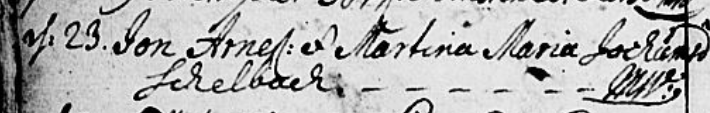 d. 23. Jon Arneß: & Martina Maria Jochumsd
Schelbach. - - - - - -